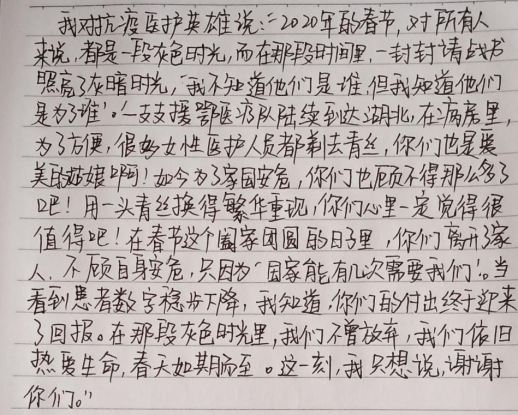 我对抗疫医护英雄说:“2020年的春节,对所有人
来说,都是一段灰色时光,而在那段时间里,一封封请战书
照亮了灰暗时光,‘我不知道他们是谁,但我知道他们
是为了谁’。一支支援鄂医疗队陆续到达湖北,在病房里,
为了方便,很多女性医护人员都剃去青丝,你们也是爱
美的姑娘啊!如今为了家国安危,你们也顾不得那么多了
吧!用一头青丝换得繁华重现,你们心里一定觉得很
值得吧!在春节这个阖家团圆的日子里,你们离开了家
人,不顾自身安危,只因为‘国家能有几次需要我们’。当
看到患者数字稳步下降,我知道,你们的付出终于迎来
了回报。在那段灰色时光里,我们不曾放弃,我们依旧
热爱生命,春天如期而至。这一刻,我只想说,谢谢
你们。”